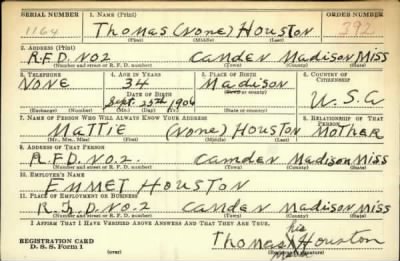 SERIAL NUMBER 1. NAME (Print) ORDER NUMBER
1164 Thomas (None) Houston 392
(First) (Middle) (Last)
2. ADDRESS (Print)
R.F.D. No 2 Camden Madison Miss
(Number and street or R. F. D. number) (Town) (County) (State)
3. TELEPHONE 4. AGE IN YEARS 5. PLACE OF BIRTH 6. COUNTRY OF CITIZENSHIP
None 34 Madison
DATE OF BIRTH (Town or county)
Sept. 25th 1906 Miss U.S.A
(Exchange) (Number) (Mo.) (Day) (Yr.) (State or country)
7. NAME OF PERSON WHO WILL ALWAYS KNOW YOUR ADDRESS 8. RELATIONSHIP OF THAT PERSON
Mattie (None) Houston Mother
(Mr., Mrs., Miss) (First) (Middle) (Last)
9. ADDRESS OF THAT PERSON
R.F.D. No. 2. Camden Madison Miss
(Number and street or R. F. D. number) (Town) (County) (State)
10. EMPLOYER'S NAME
Emmet Houston
11. PLACE OF EMPLOYMENT OR BUSINESS
R.F.D No-2 Camden Madison Miss
(Number and street or R. F. D. number) (Town) (County) (State)
I AFFIRM THAT I HAVE VERIFIED ABOVE ANSWERS AND THAT THEY ARE TRUE.
his
Thomas X Houston
REGISTRATION CARD
D. S. S. Form 1 (over) (Registrant's signature)